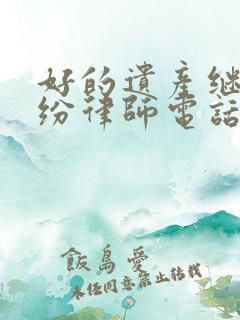 好的遺產继
纷律師電話
飯島愛
未经同意禁止转载